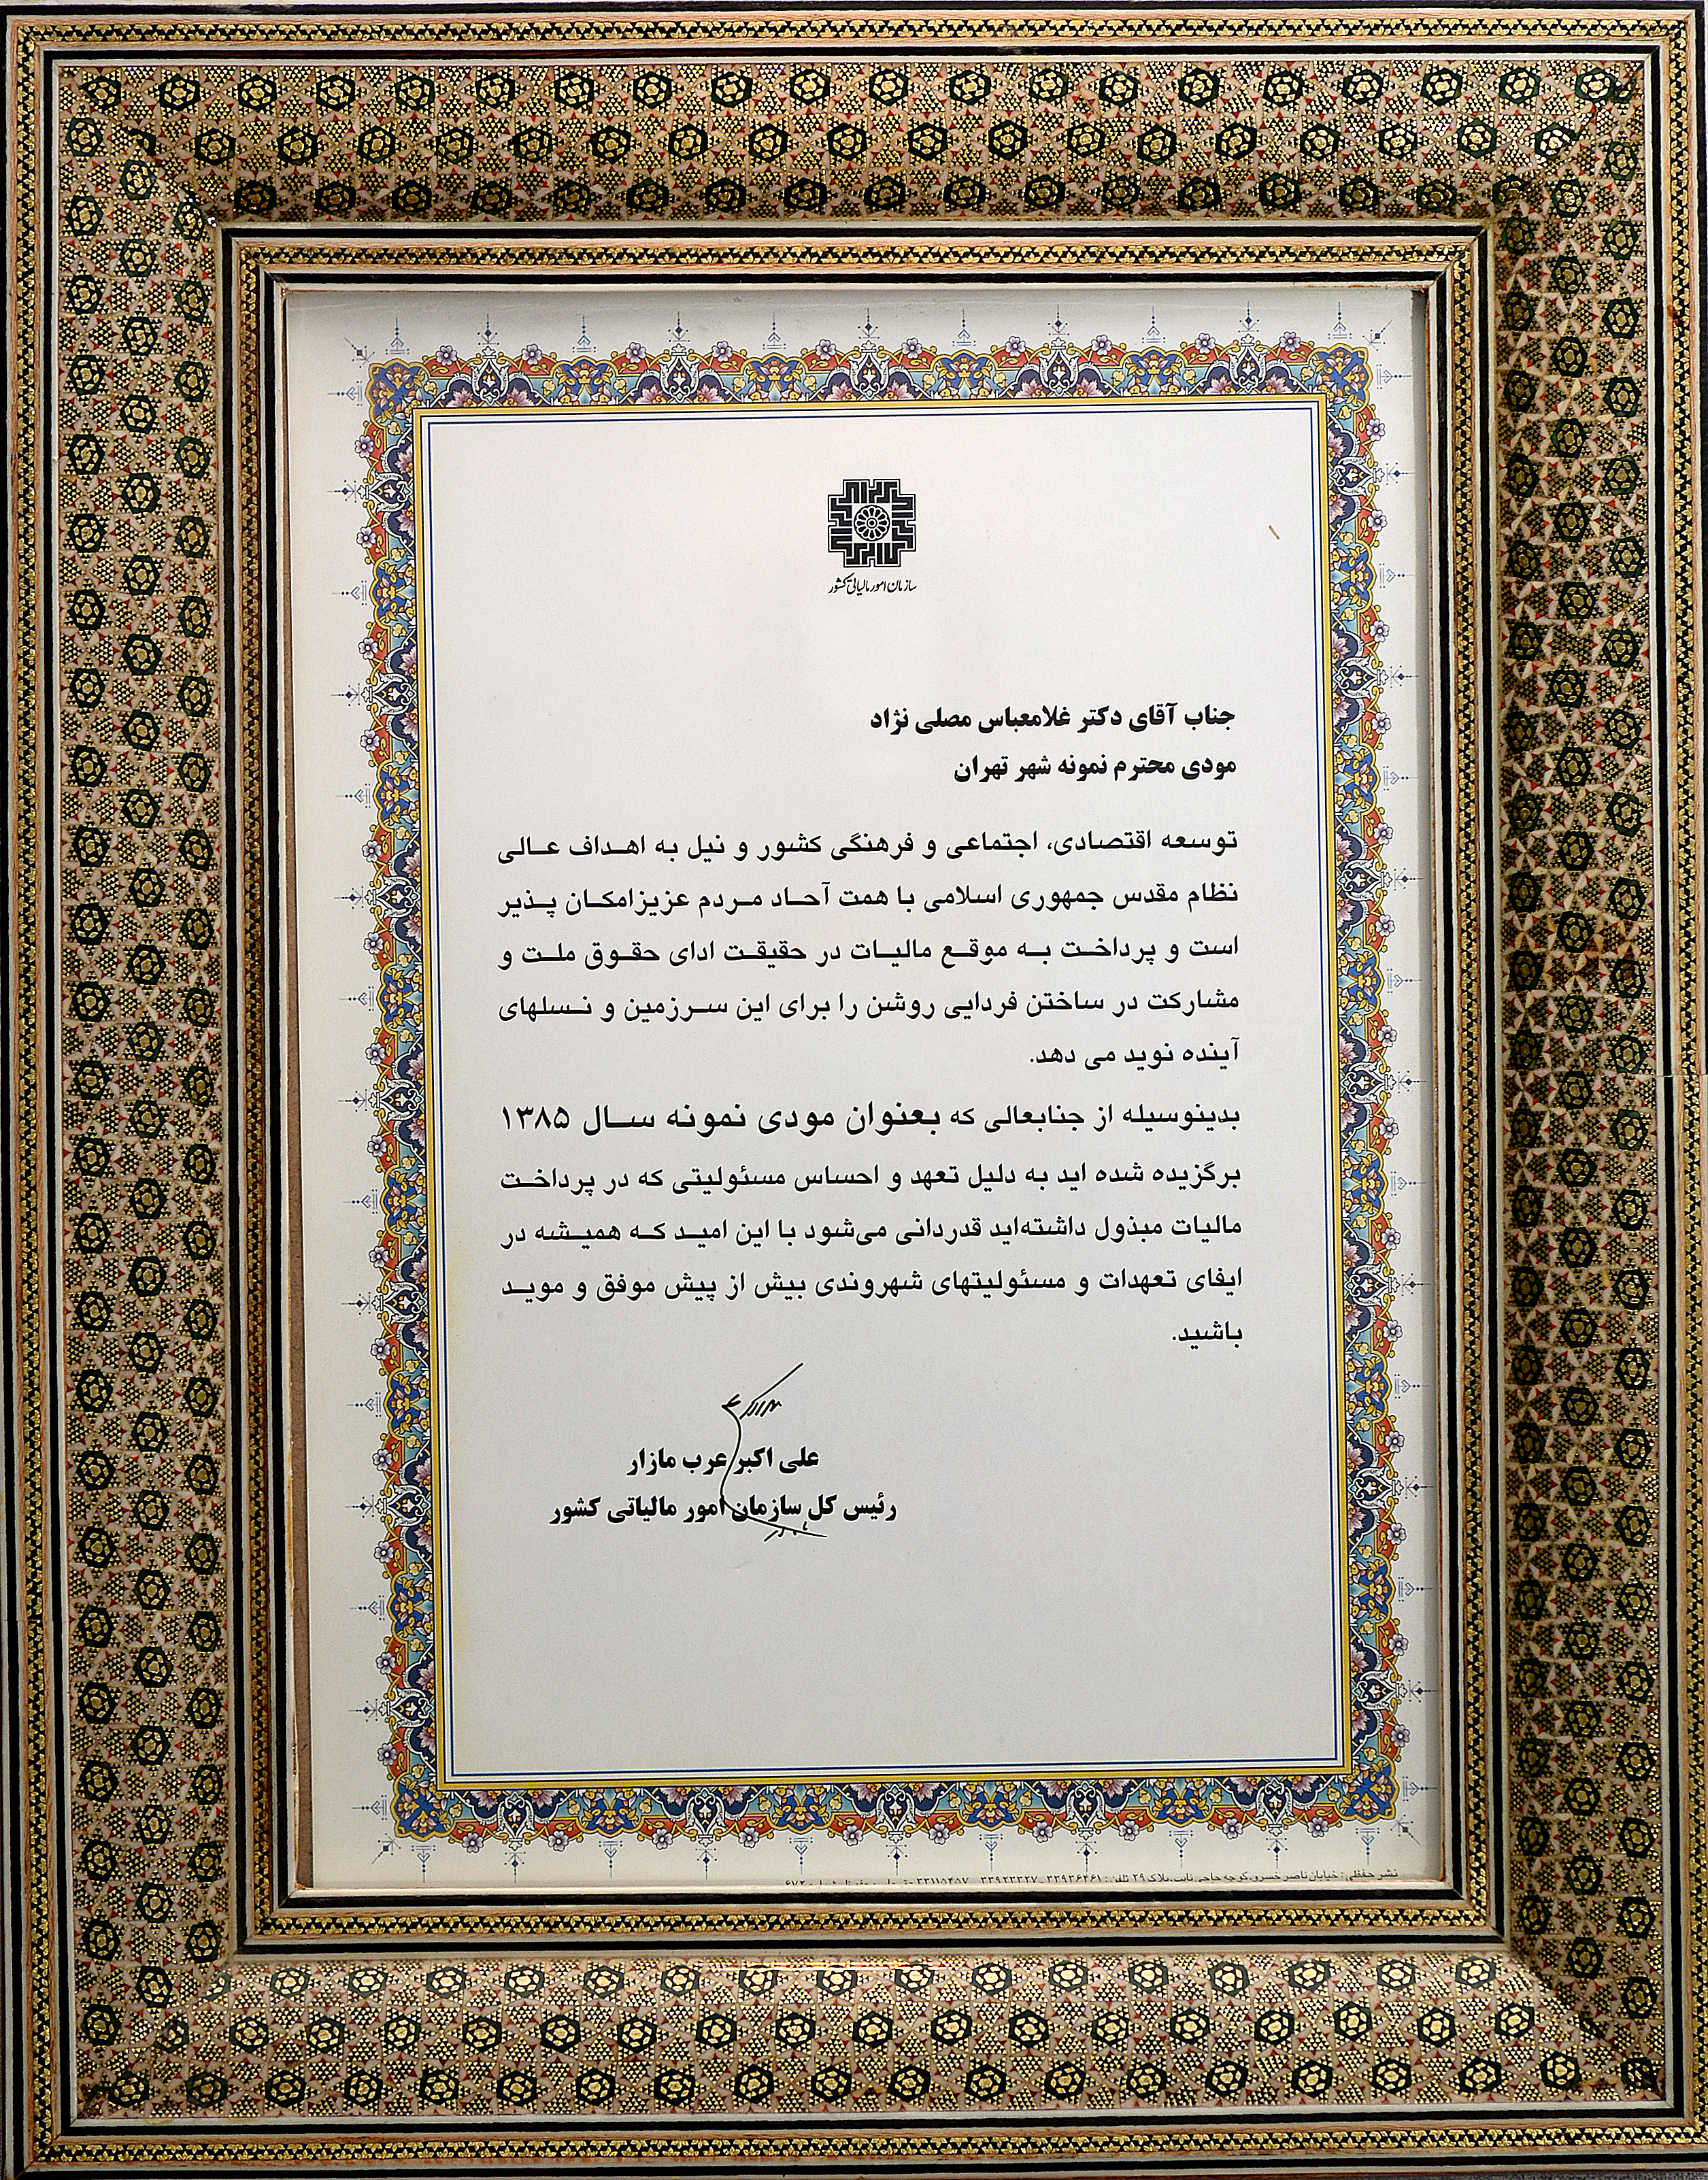 سازمان امور مالیاتی کشور
جناب آقای دکتر غلامعباس مصلی نژاد
مودی محترم نمونه شهر تهران
توسعه اقتصادی، اجتماعی و فرهنگی کشور و نیل به اهداف عالی
نظام مقدس جمهوری اسلامی با همت آحاد مردم عزیزامکان پذیر
است و پرداخت به موقع مالیات در حقیقت ادای حقوق ملت و
مشارکت در ساختن فردایی روشن را برای این سرزمین و نسلهای
آینده نوید می دهد.
بدینوسیله از جنابعالی که بعنوان مودی نمونه سال ۱۳۸۵
برگزیده شده اید به دلیل تعهد و احساس مسئولیتی که در پرداخت
مالیات مبذول داشته‌اید قدردانی می‌شود با این امید که همیشه در
ایفای تعهدات و مسئولیتهای شهروندی بیش از پیش موفق و موید
باشید.
علی اکبر عرب مازار
رئیس کل سازمان امور مالیاتی کشور
نشر حفظی : خیابان ناصر خسرو، کوچه حاجی نایب، پلاک ۲۹ تلفن: ۳۳۹۳۶۴۶۱ ۳۳۹۲۳۳۲۷ ۳۳۱۱۵۴۵۷